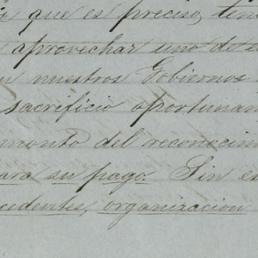 que es preciso, ten
aprovechar uno de e
n nuestros Gobiernos
sacrificio oportunam
monto del reconocim
ara su pago. Sin e
cedentes, organizacion